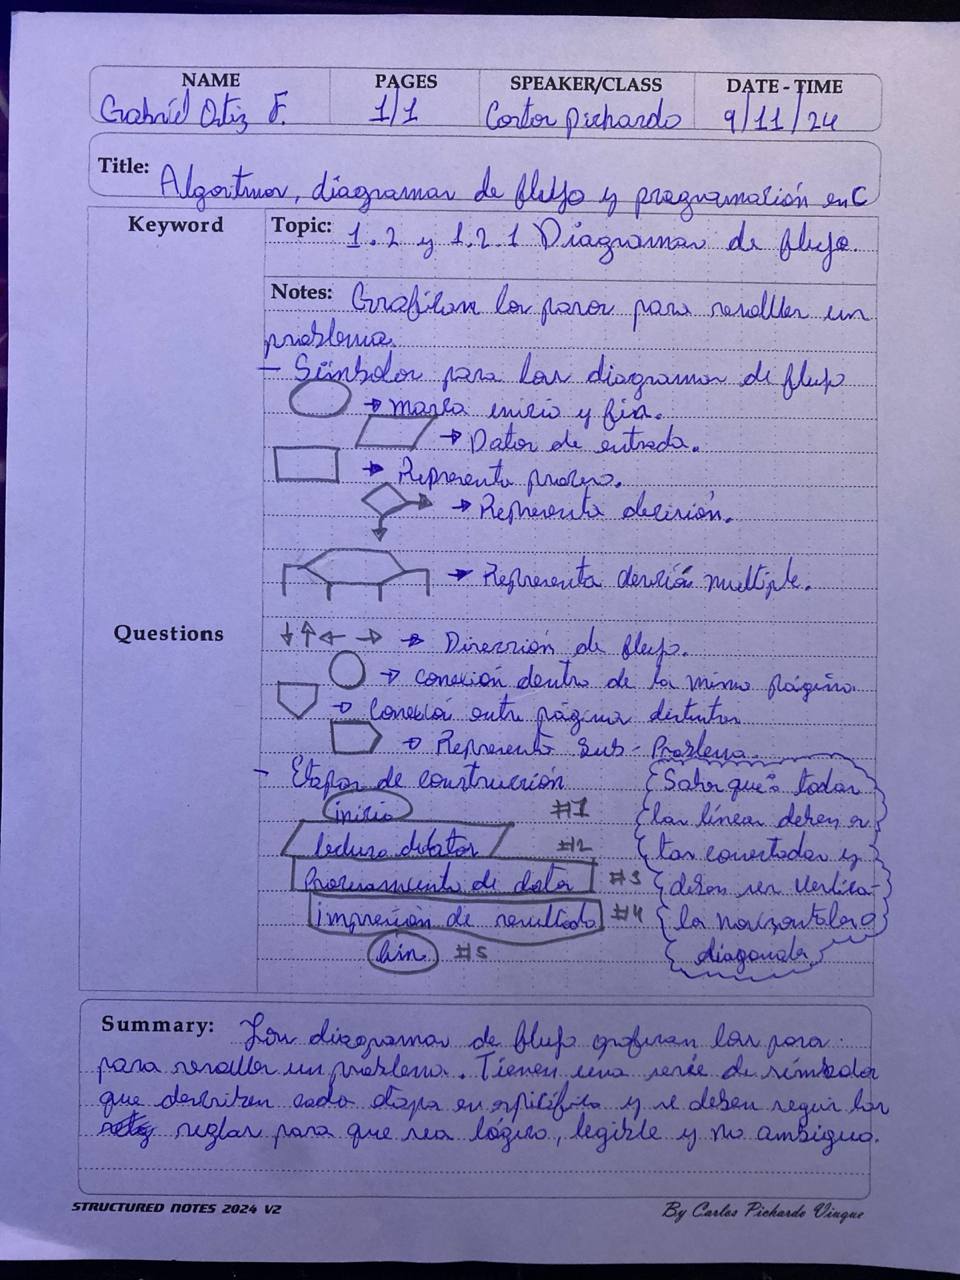 NAME PAGES SPEAKER/CLASS DATE - TIME
Gabriel Ortiz F. 1/1 Pichardo 9/11/24
Title: Algoritmos, diagramas de flujo y programación en C
Keyword
Topic: 1.2 y 1.2.1 Diagramas de flujo.
Notes: Grafican los pasos para resolver un
problema.
- Símbolos para los diagramas de flujo
→ marca inicio y fin.
→ Datos de entrada.
→ Representa proceso.
→ Representa decisión.
→ Representa decisión multiple.
Questions
↓ ↑ ← → → Dirección de flujo.
→ conexión dentro de la misma página
→ Conexión entre página distintas
→ Representa sub-Problema.
- Etapas de construcción
inicio #1
lectura de datos #2
Procesamiento de datos #3
impresión de resultado #4
fin #5
Saber que todas
las líneas deben es
tar conectadas y
deben ser vertica-
la horizontales o
diagonales
Summary: Los diagramas de flujo grafican los pasos
para resolver un problema. Tienen una serie de símbolos
que describen cada etapa en específico y se deben seguir las
reglas para que sea lógico, legible y no ambiguo.
STRUCTURED NOTES 2024 V2
By Carlos Pichardo Viuque